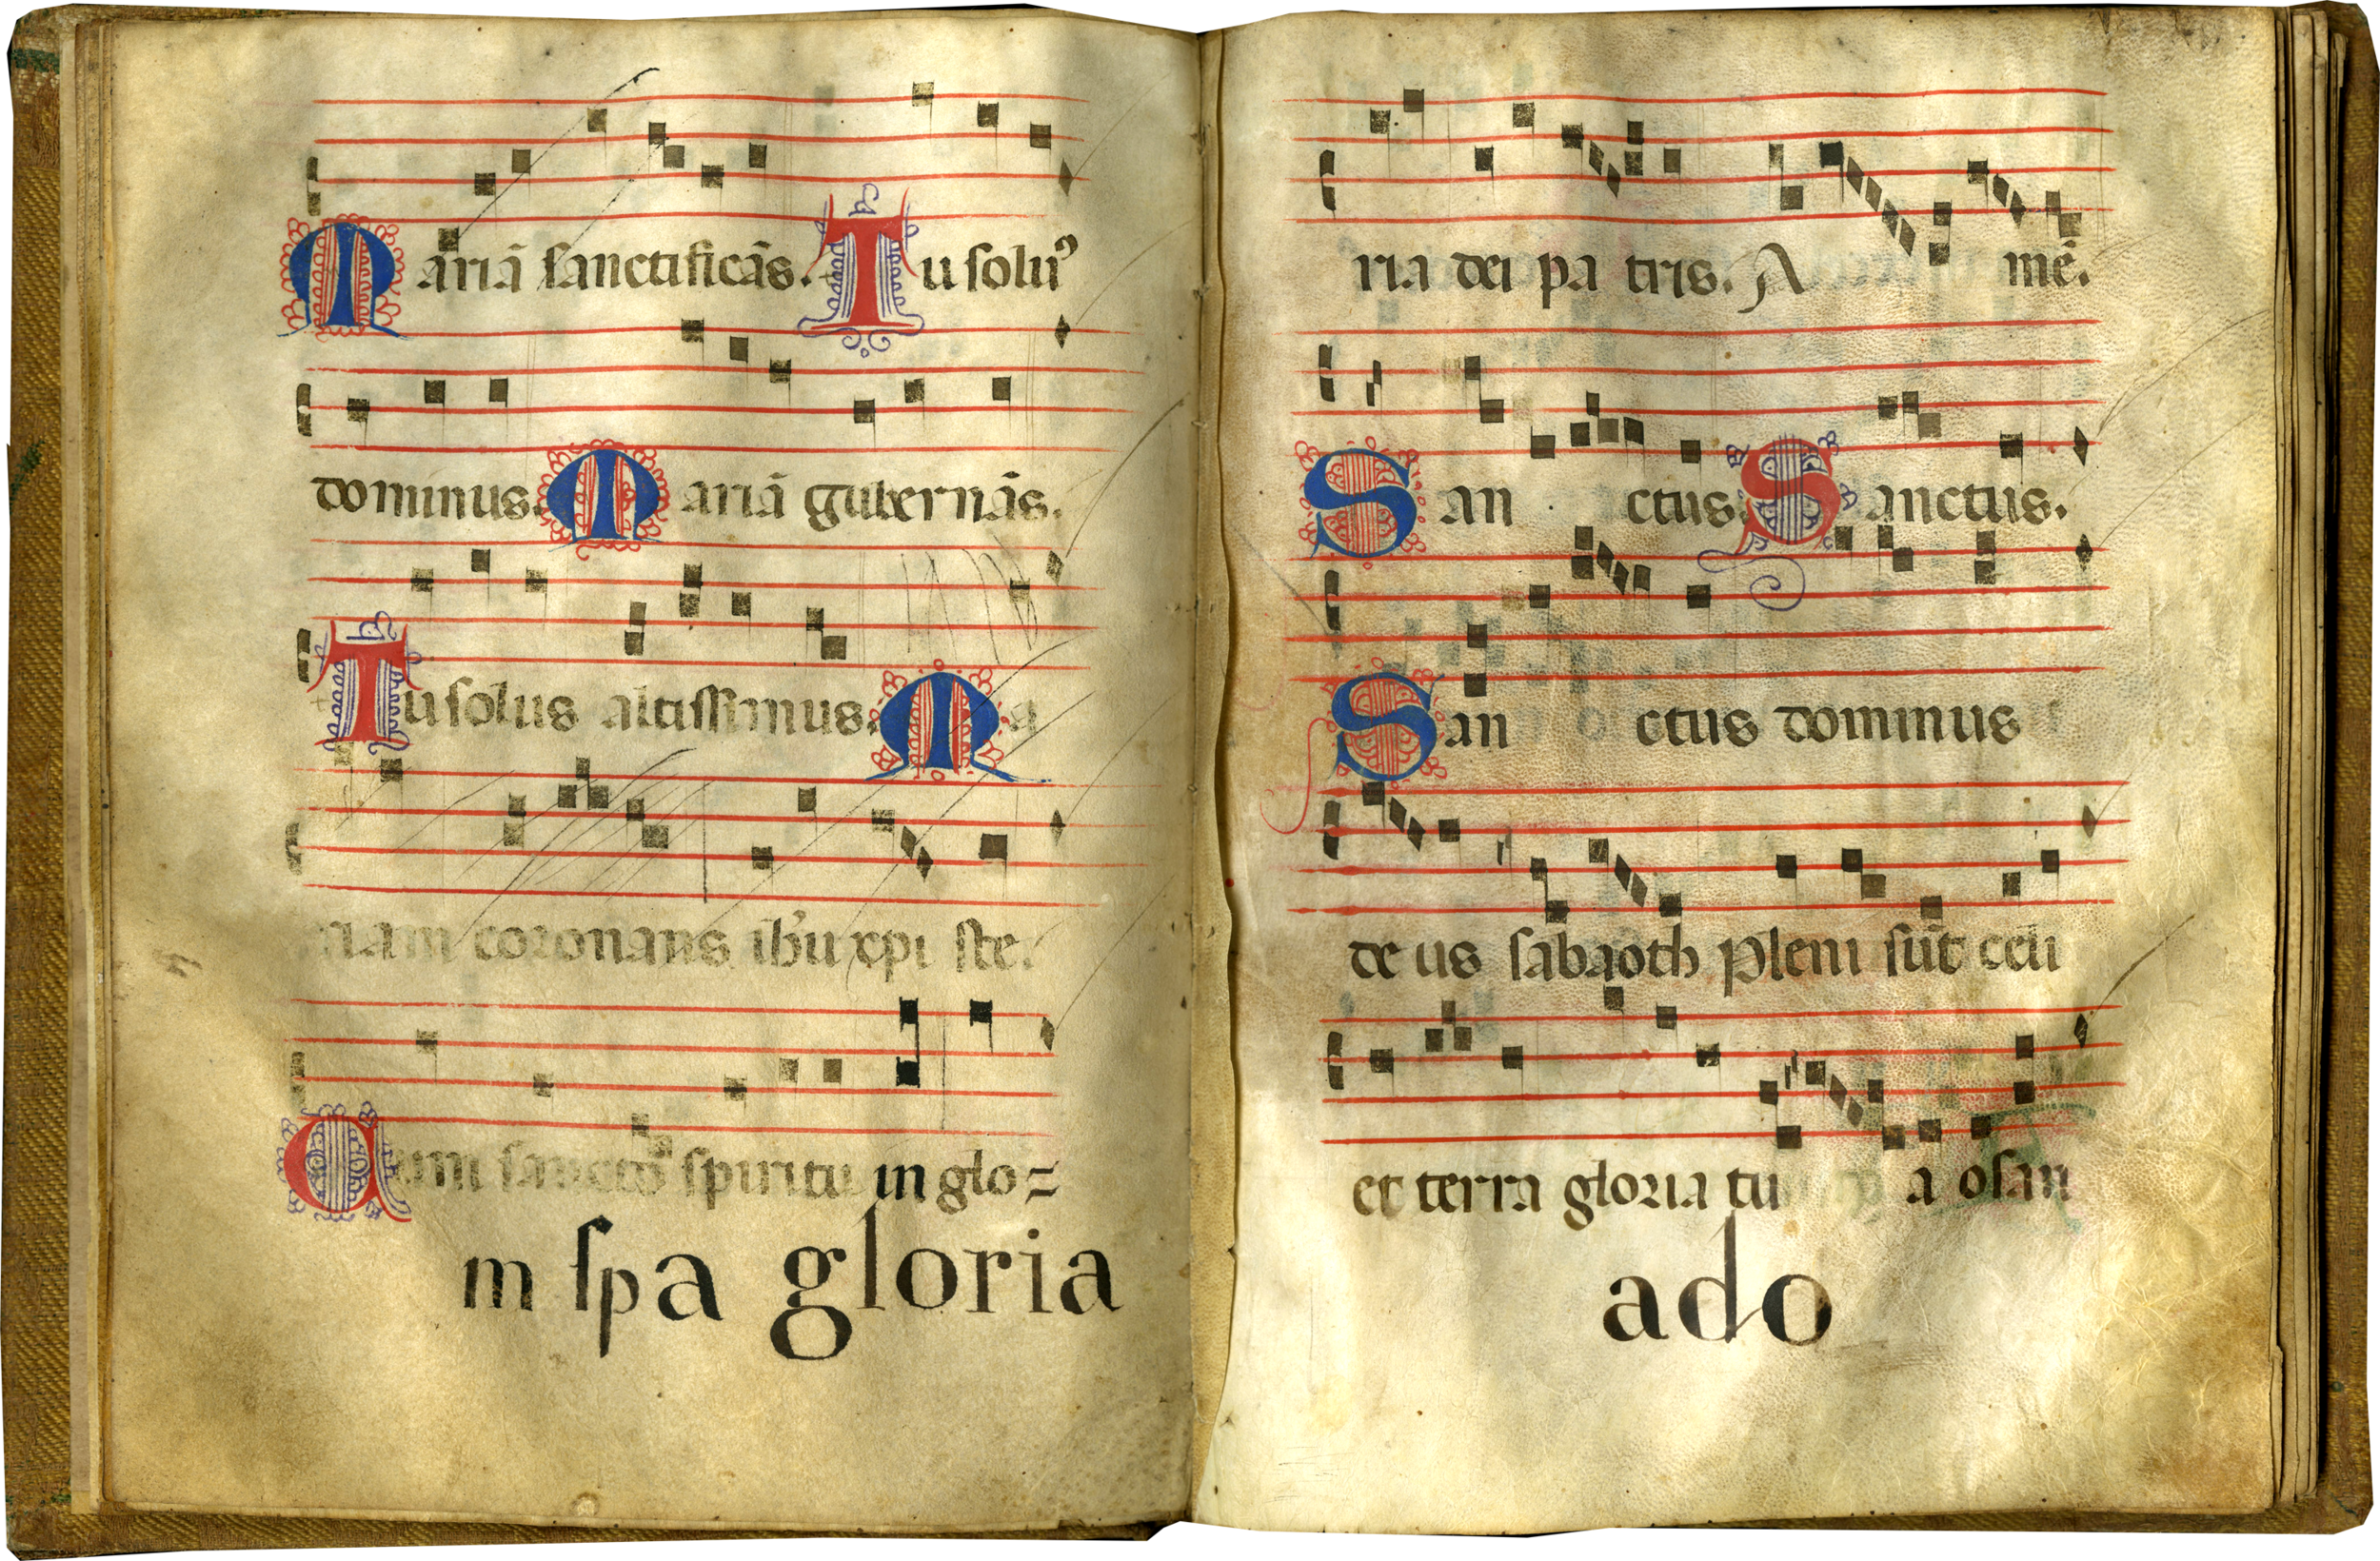 Mariā sanctificās. Tu solꝰ
dominus. Mariā gubernās.
Tu solus altissimus. Ma
riam coronans ihū xpi ste.
Cum sancto spiritu in glo=
m spa gloria
ria dei pa tris. A mē.
San ctus. Sanctus.
San ctus dominus
de us sabaoth Pleni sūt celi
et terra gloria tu a osan
ado